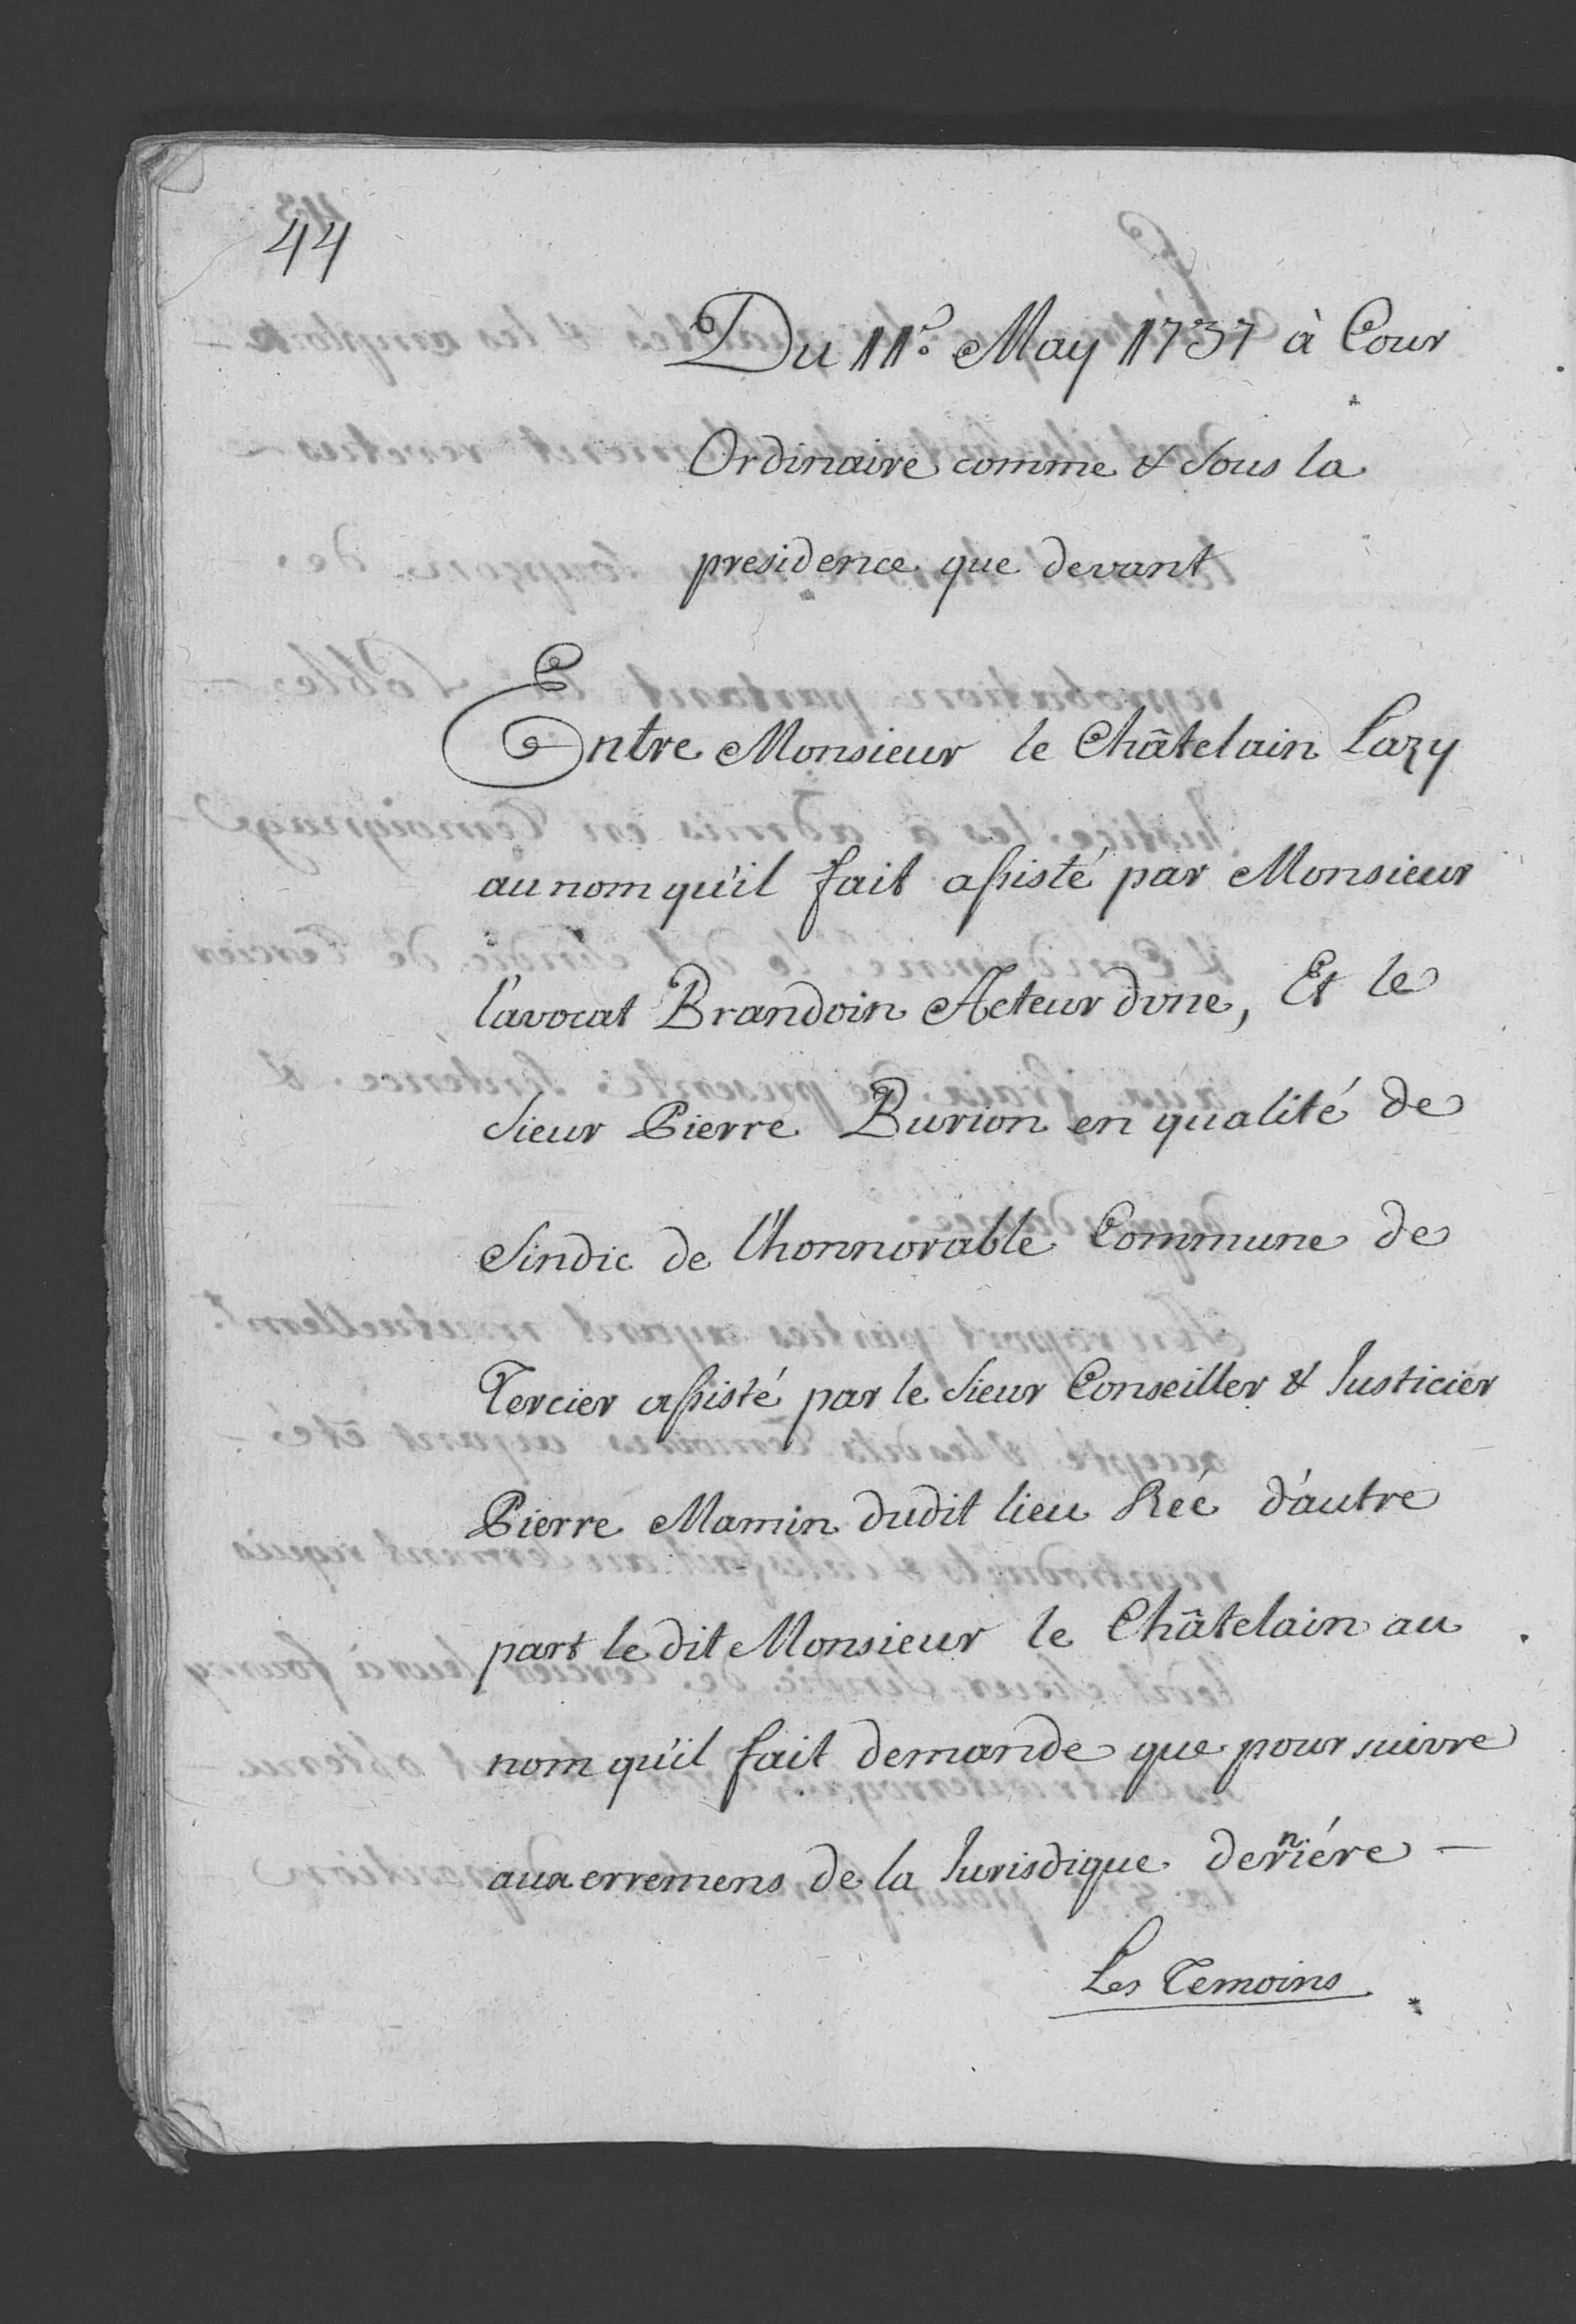 44
Du 11.e May 1737 à Cour
Ordinaire comme & sous la
presidence que devant
Entre Monsieur le Châtelain Cazy
au nom qu'il fait assisté par Monsieur
l'avocat Brandoin Acteur d'vne, Et le
Sieur Pierre Burion en qualité de
Sindic de l'honnorable Commune de
Tercier assisté par le Sieur Conseiller & Justicier
Pierre Mamin dudit lieu Réé d'autre
part le dit Monsieur le Châtelain au
nom qu'il fait demande que pour suivre
aux erremens de la Jurisdique derniére —
Les Temoins